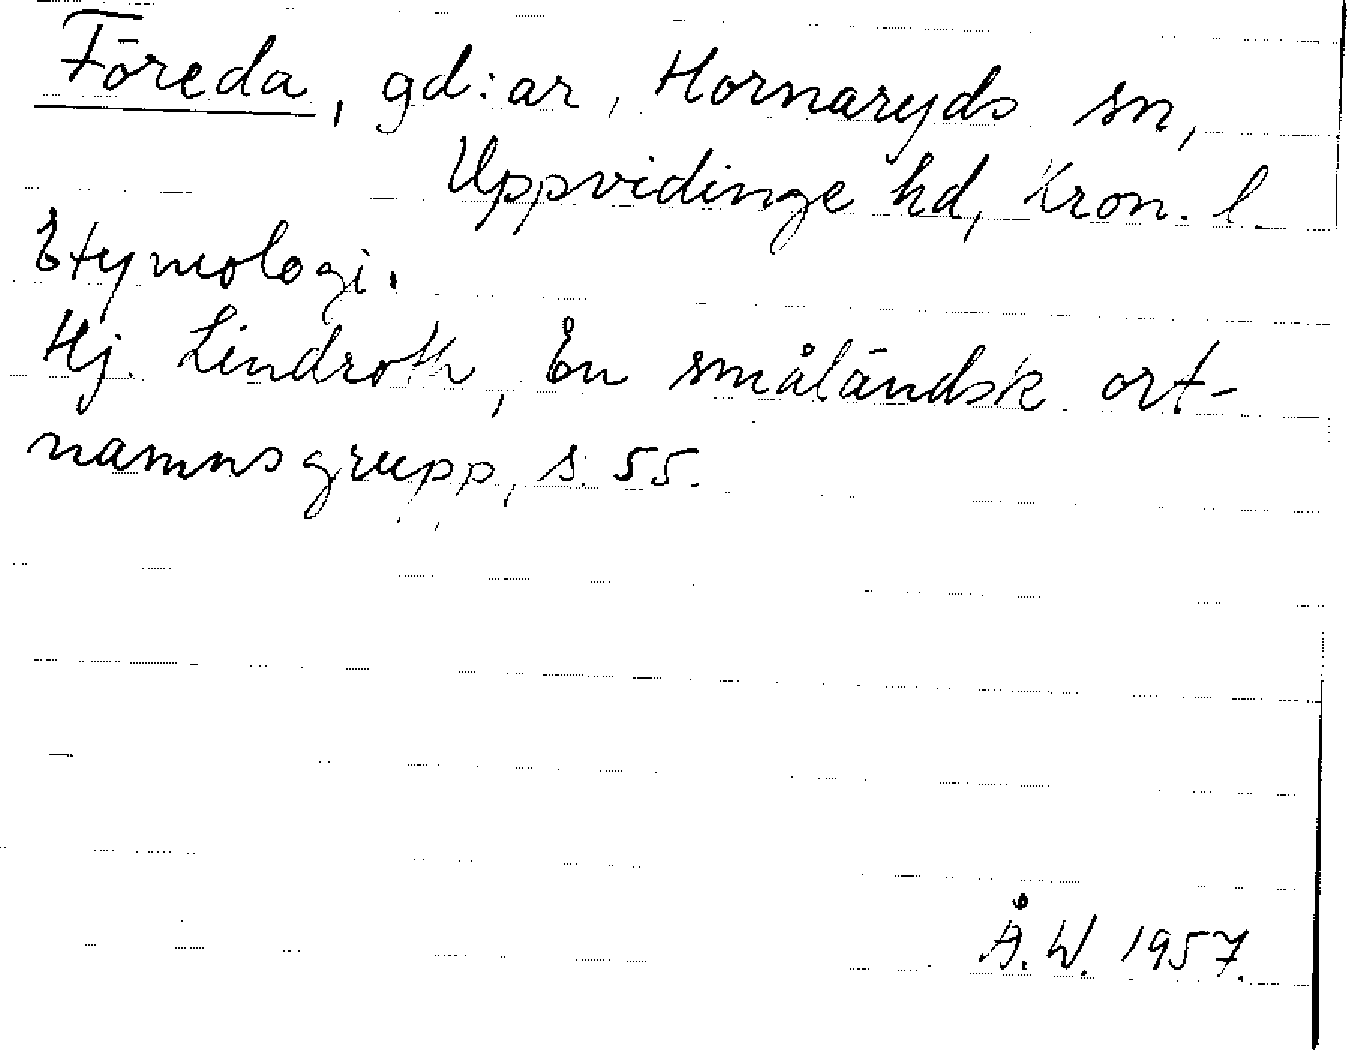 Föreda, gd:ar, Hornaryds sn,
Uppvidinge hd, Kron. l
Etymologi.
Hj. Lindroth, En småländsk ort-
namnsgrupp, s. 55.
Å. W. 1957.